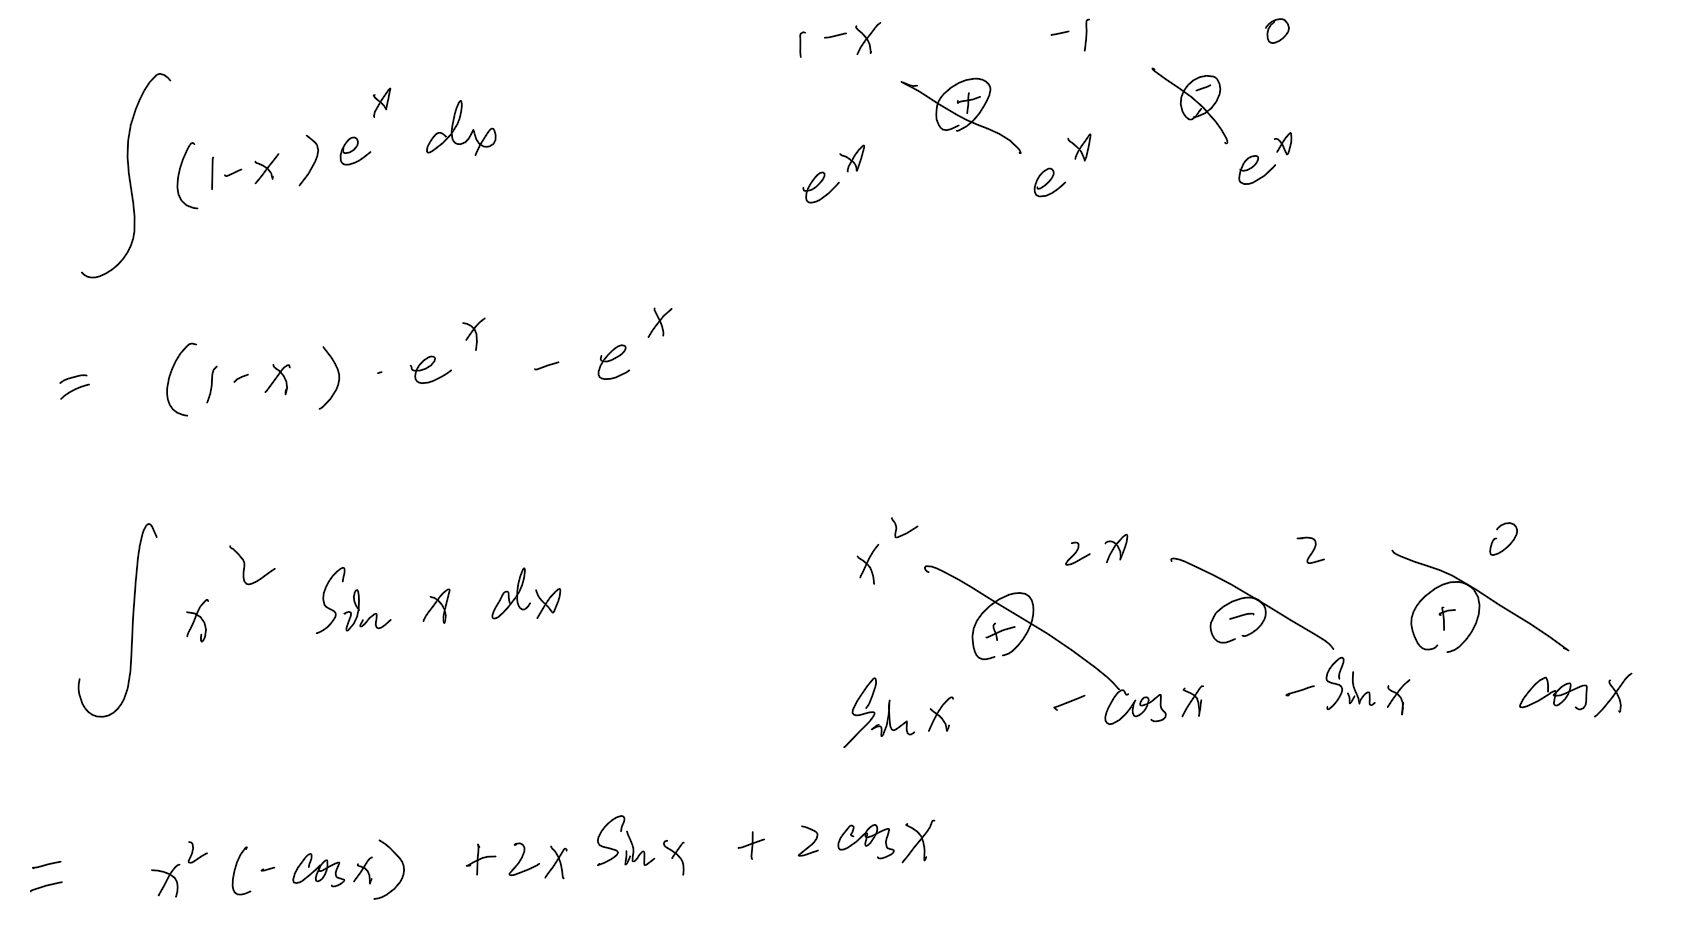 ∫(1-x)e^x dx
1-x -1 0
⊕ ⊖
e^x e^x e^x
= (1-x)·e^x - e^x
∫x^2 sin x dx
x^2 2x 2 0
⊕ ⊖ ⊕
sin x -cos x -sin x cos x
= x^2(-cos x) +2x sin x + 2cos x